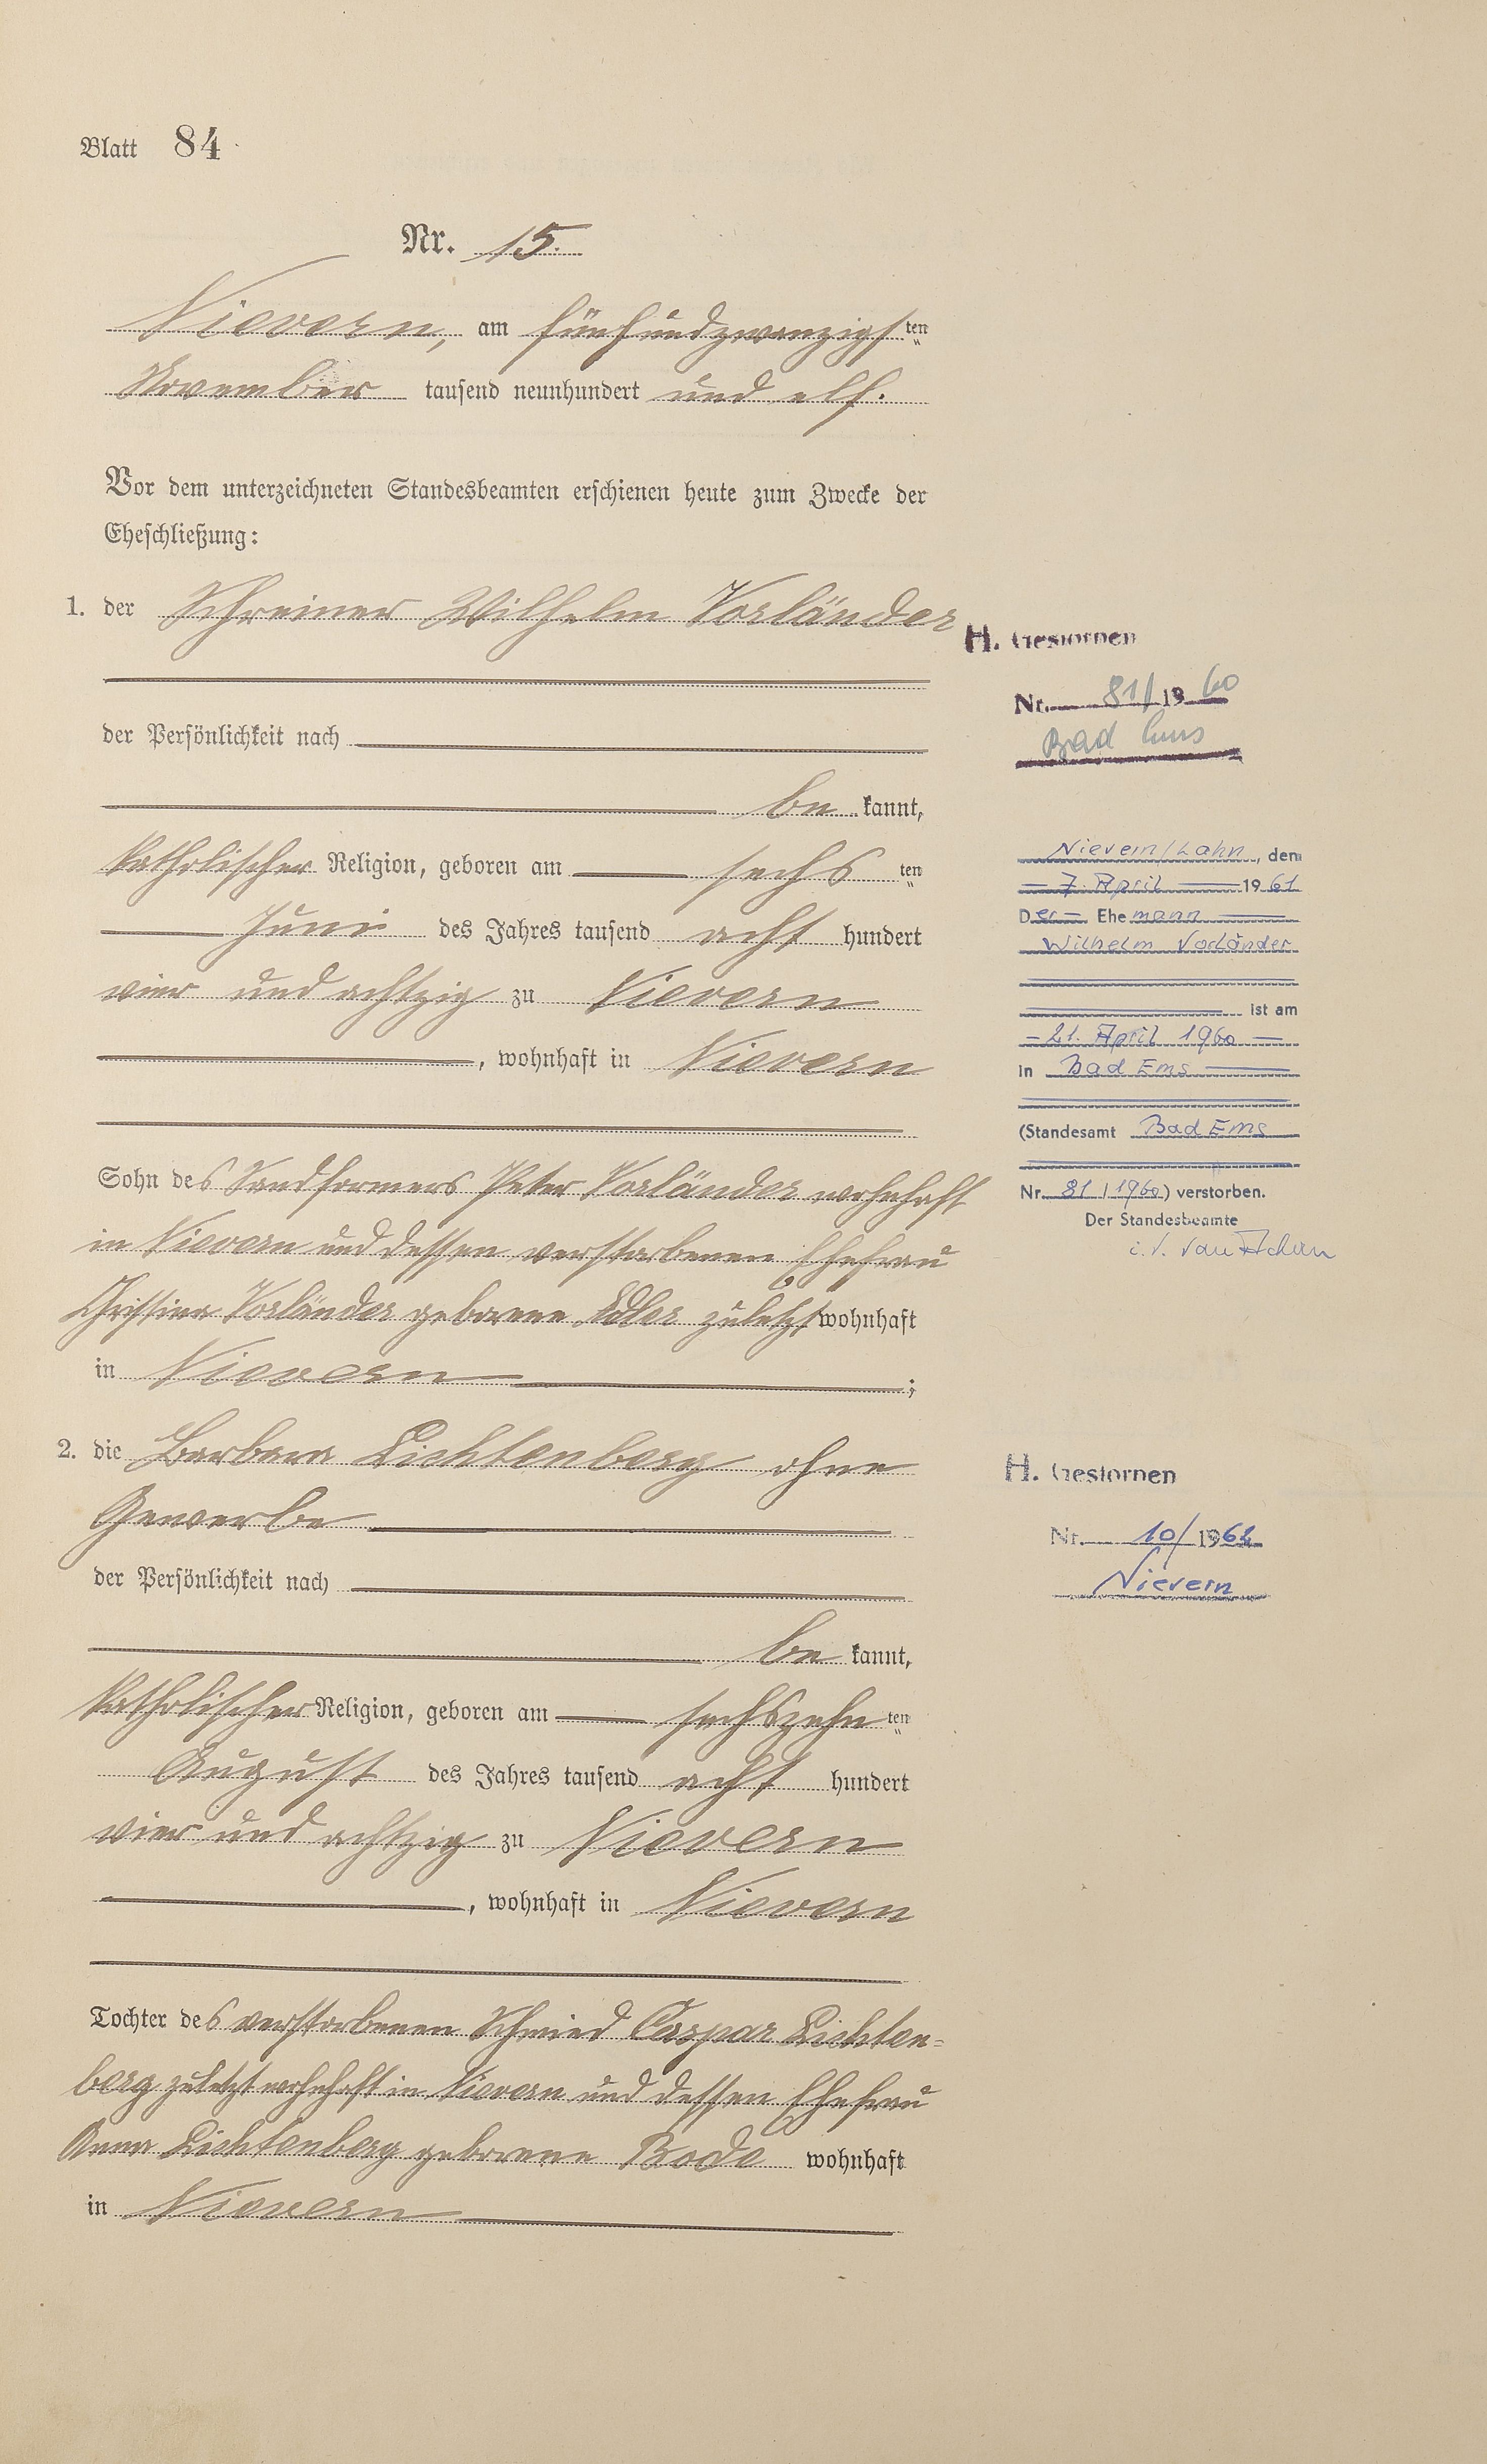 Blatt 84
Nr. 15.
Nievern, am fünfundzwanzigsten
November tausend neunhundert und elf.
Vor dem unterzeichneten Standesbeamten erschienen heute zum Zwecke der
Eheschließung:
1. der Schreiner Wilhelm Vorländer
der Persönlichkeit nach
be kannt,
katholischer Religion, geboren am sechs ten
Juni des Jahres tausend acht hundert
vier und achtzig zu Nievern
, wohnhaft in Nievern
Sohn des Sandformers Peter Vorländer wohnhaft
in Nievern und dessen verstorbenen Ehefrau
Christina Vorländer geborene Adler zuletzt wohnhaft
in Nievern ;
2. die Barbara Lichtenberg ohne
Gewerbe
der Persönlichkeit nach
be kannt,
katholischer Religion, geboren am sechszehn ten
August des Jahres tausend acht hundert
vier und achtzig zu Nievern
, wohnhaft in Nievern
Tochter des verstorbenen Schmied Caspar Lichten=
berg zuletzt wohnhaft in Nievern und dessen Ehefrau
Anna Lichtenberg geborene Bode wohnhaft
in Nievern
H. Gestorben
Nr. 81/1960
Bad Ems
Nievern/Lahn, den
7. April 1961
Der Ehemann
Wilhelm Vorländer
ist am
21. April 1960
in Bad Ems
(Standesamt Bad Ems
Nr. 81/1960) verstorben.
Der Standesbeamte
i.V.
H. Gestorben
Nr. 10/1962
Nievern